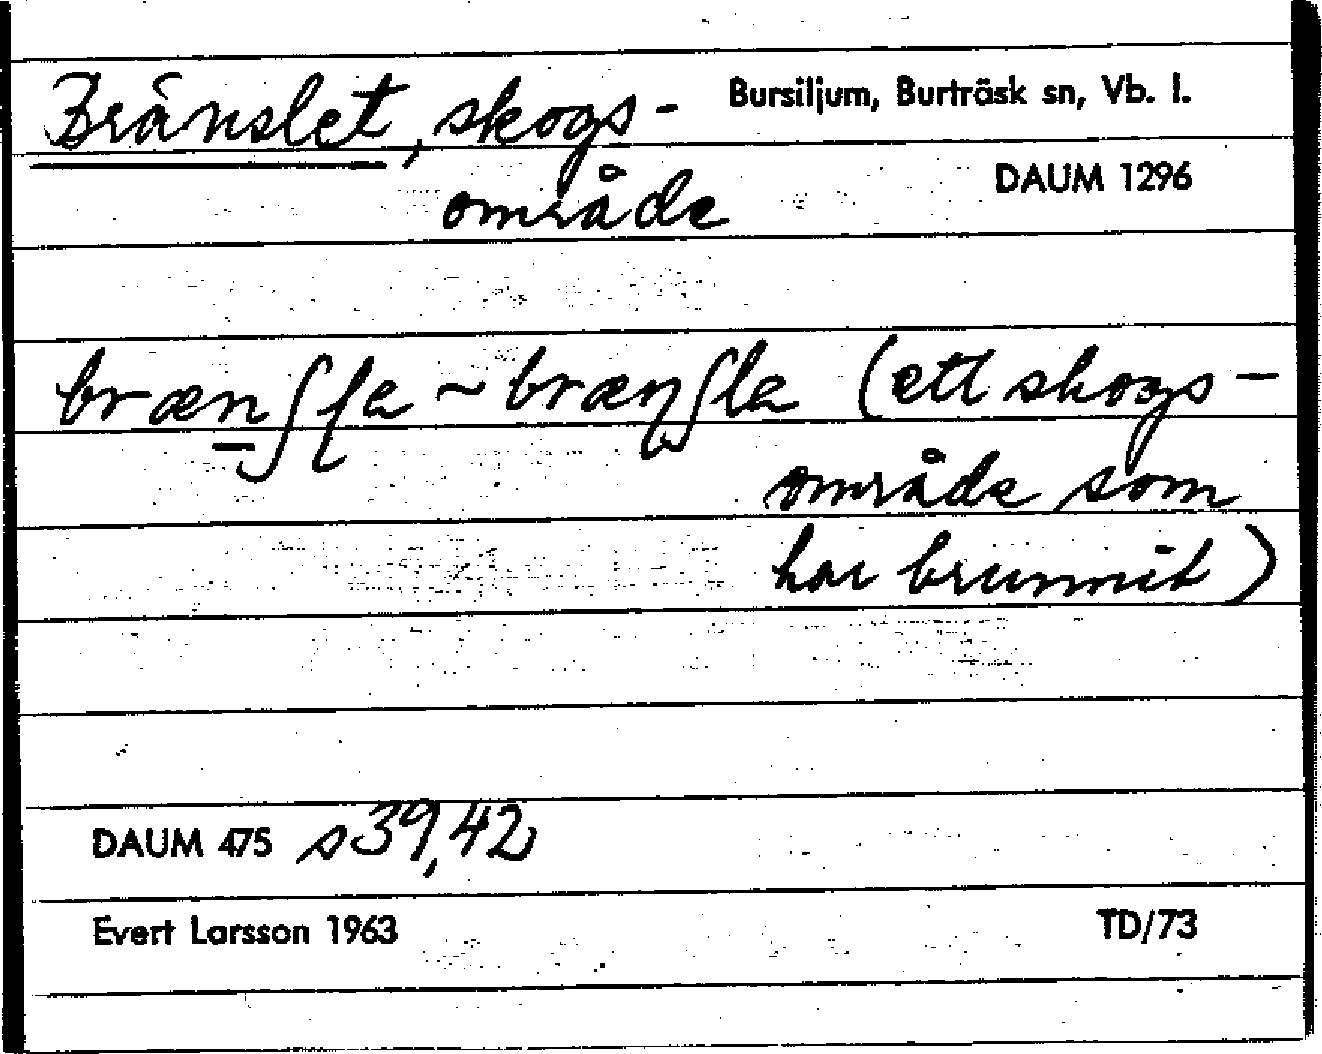 Bränslet, skogs- Bursiljum, Burträsk sn, Vb. l.
område DAUM 1296
bræn̲ʃɭa ~ bræŋʃla (ett skogs-
område som
har brunnit)
DAUM 475 s 39, 42
Evert Larsson 1963 TD/73